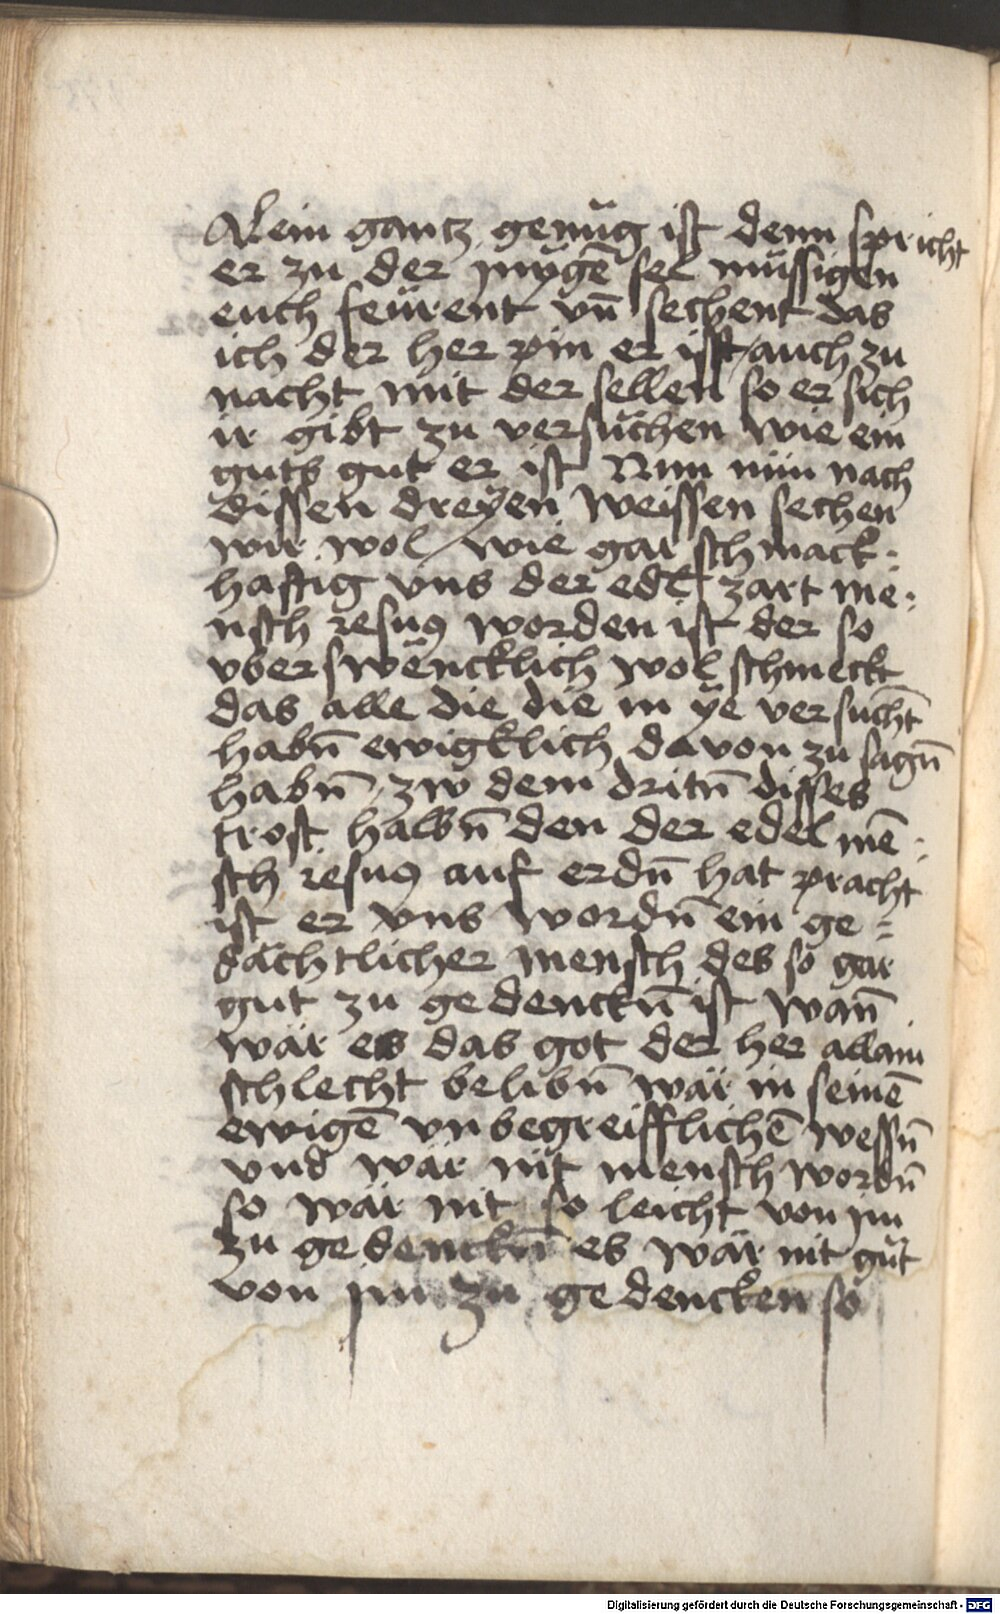 Alein gantz genüg ist denn spricht
er zu der jnygē sel müssigen
euch feürent vn̄ sechent das
ich der her pin er isst auch zu
nacht mit der sellen so er sich
ir gibt zu versüchen wie ein
guts gut er ist Nun nün nach
dissen dreÿen weissen sechen
wir wol wie gar schmack:
hafftig vns der edel zart me:
nsch iesus worden ist der so
vberswëncklich wol schmeckt
das alle die die in ÿe versucht̄
habn̄ ewigklich davon zu sagn̄
habn̄ zw dem dritn̄ disses
trost halbn̄ den der edel mē:
sch iesus auf erdn̄ hat pracht
ist er vns wordn̄ ein ge=
dächtlicher mensch des so gar
gut zu gedenckn̄ ist wan̄
wär es das got der her allain
schlecht belibn̄ wär in seinē
ewigē vnbegreifflichē wessn̄
vnd wär nit mensch wordn̄
so wär nit so leicht von jm
zu gedenckn̄ es wär nit güt
von jm zu gedencken so
Digitalisierung gefördert durch die Deutsche Forschungsgemeinschaft - DFG